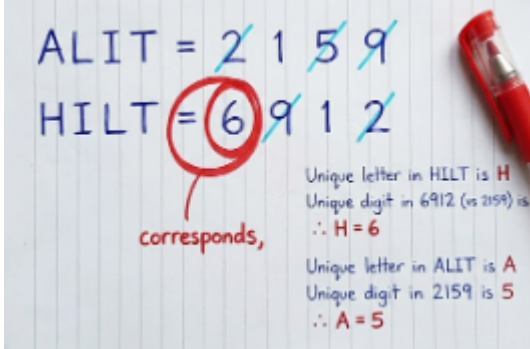 ALIT = 2 1 5 9
HILT = 6 9 1 2
corresponds,
Unique letter in HILT is H
Unique digit in 6912 (vs 2159) is
∴ H = 6
Unique letter in ALIT is A
Unique digit in 2159 is 5
∴ A = 5